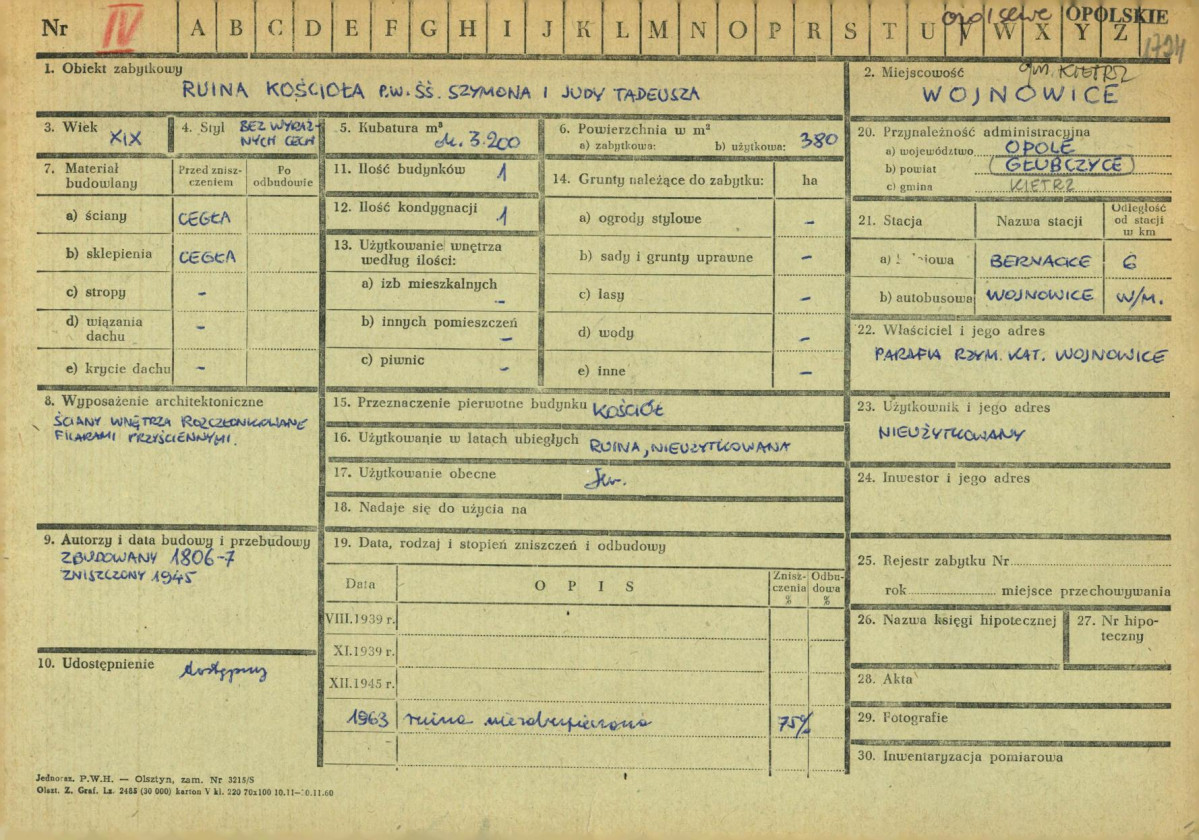 Nr IV A B C D E F G H I J K L M N O P R S T U V W X Y Z
opolskie OPOLSKIE
1724
1. Obiekt zabytkowy
RUINA KOŚCIOŁA P.W. ŚŚ. SZYMONA I JUDY TADEUSZA
2. Miejscowość gm. KIETRZ
WOJNOWICE
3. Wiek
XIX
4. Styl BEZ WYRAŹ-
NYCH CECH
5. Kubatura m³
ok. 3.200
6. Powierzchnia w m²
a) zabytkowa: b) użytkowa: 380
7. Materiał budowlany
Przed znisz-
czeniem
Po
odbudowie
a) ściany CEGŁA
b) sklepienia CEGŁA
c) stropy –
d) wiązania
dachu –
e) krycie dachu –
8. Wyposażenie architektoniczne
ŚCIANY WNĘTRZA ROZCZŁONKOWANE
FILARAMI PRZYŚCIENNYMI.
9. Autorzy i data budowy i przebudowy
ZBUDOWANY 1806-7
ZNISZCZONY 1945
10. Udostępnienie dostępny
11. Ilość budynków 1
12. Ilość kondygnacji 1
13. Użytkowanie wnętrza
według ilości:
a) izb mieszkalnych –
b) innych pomieszczeń –
c) piwnic –
14. Grunty należące do zabytku: ha
a) ogrody stylowe –
b) sady i grunty uprawne –
c) lasy –
d) wody –
e) inne –
15. Przeznaczenie pierwotne budynku KOŚCIÓŁ
16. Użytkowanie w latach ubiegłych RUINA, NIEUŻYTKOWANA
17. Użytkowanie obecne
18. Nadaje się do użycia na
19. Data, rodzaj i stopień zniszczeń i odbudowy
Data O P I S
Znisz-
czenia
%
Odbu-
dowa
%
VIII.1939 r.
XI.1939 r.
XII.1945 r.
1963 ruina niezabezpieczona 75%
20. Przynależność administracyjna
a) województwo OPOLE
b) powiat GŁUBCZYCE
c) gmina KIETRZ
21. Stacja Nazwa stacji
Odległość
od stacji
w km
a) BERNACKE 6
b) autobusowa WOJNOWICE W/M.
22. Właściciel i jego adres
PARAFIA RZYM. KAT. WOJNOWICE
23. Użytkownik i jego adres
NIEUŻYTKOWANY
24. Inwestor i jego adres
25. Rejestr zabytku Nr
rok miejsce przechowywania
26. Nazwa księgi hipotecznej
27. Nr hipo-
teczny
28. Akta
29. Fotografie
30. Inwentaryzacja pomiarowa
Jednoraz. P.W.H. — Olsztyn, zam. Nr 3215/S